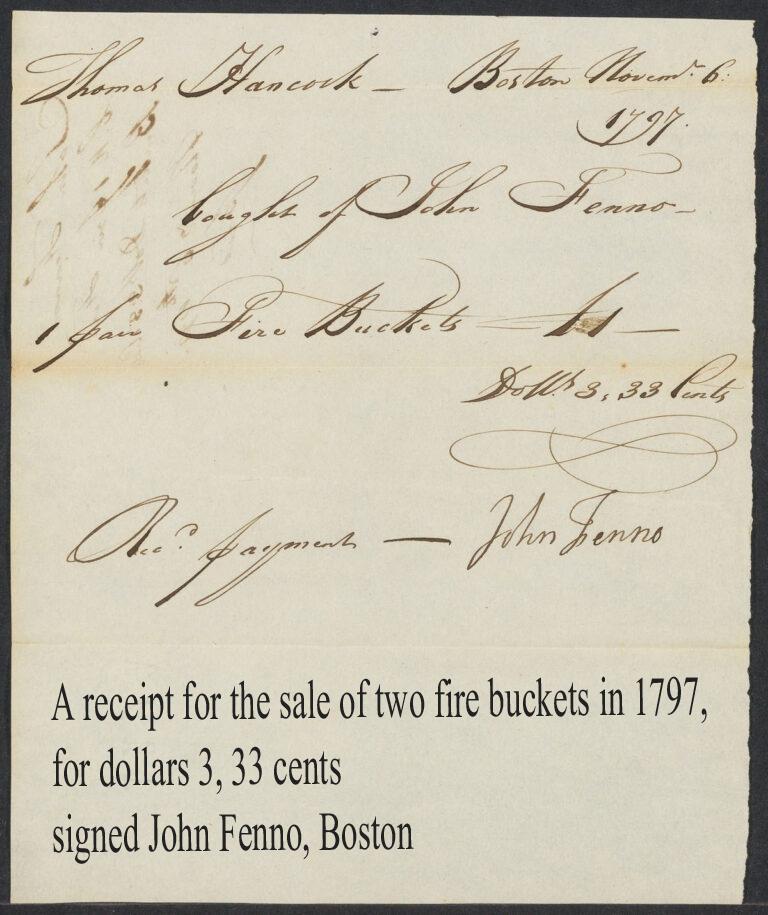 Thomas Hancock — Boston Novemr. 6:
1797.
bought of John Fenno —
1 pair Fire Buckets —
Dolls 3,33 Cents
Recd. payment — John Fenno
A receipt for the sale of two fire buckets in 1797,
for dollars 3, 33 cents
signed John Fenno, Boston